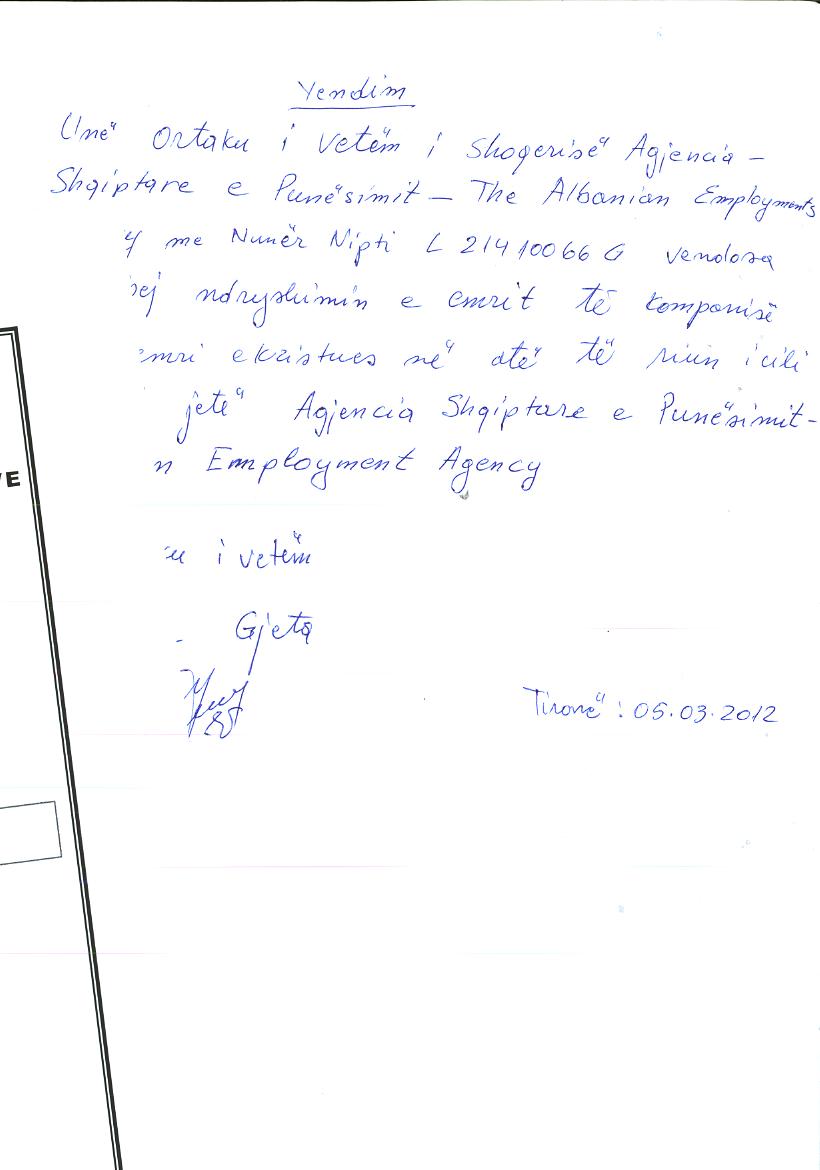 Vendim
Unë Ortaku i Vetëm i Shoqerisë Agjencia –
Shqiptare e Punësimit – The Albanian Employments
y me Numër Nipti L 21410066 G vendosa
sej ndryshimin e emrit të kompanisë
emri ekzistues në atë të riun i cili
jetë Agjencia Shqiptare e Punësimit-
n Employment Agency
u i vetëm
Gjeta
Tiranë : 05.03.2012
VE